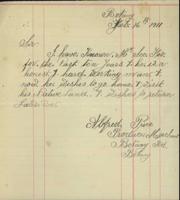 Botany
Feb. 16th 1911
Sir
I have known Ah
for the last ten years & he is a
honest & hard working man &
now he wishes to go home & visit
his native land & wishes to return
Alfred
Produce Merchant
Botany Rd
Botany